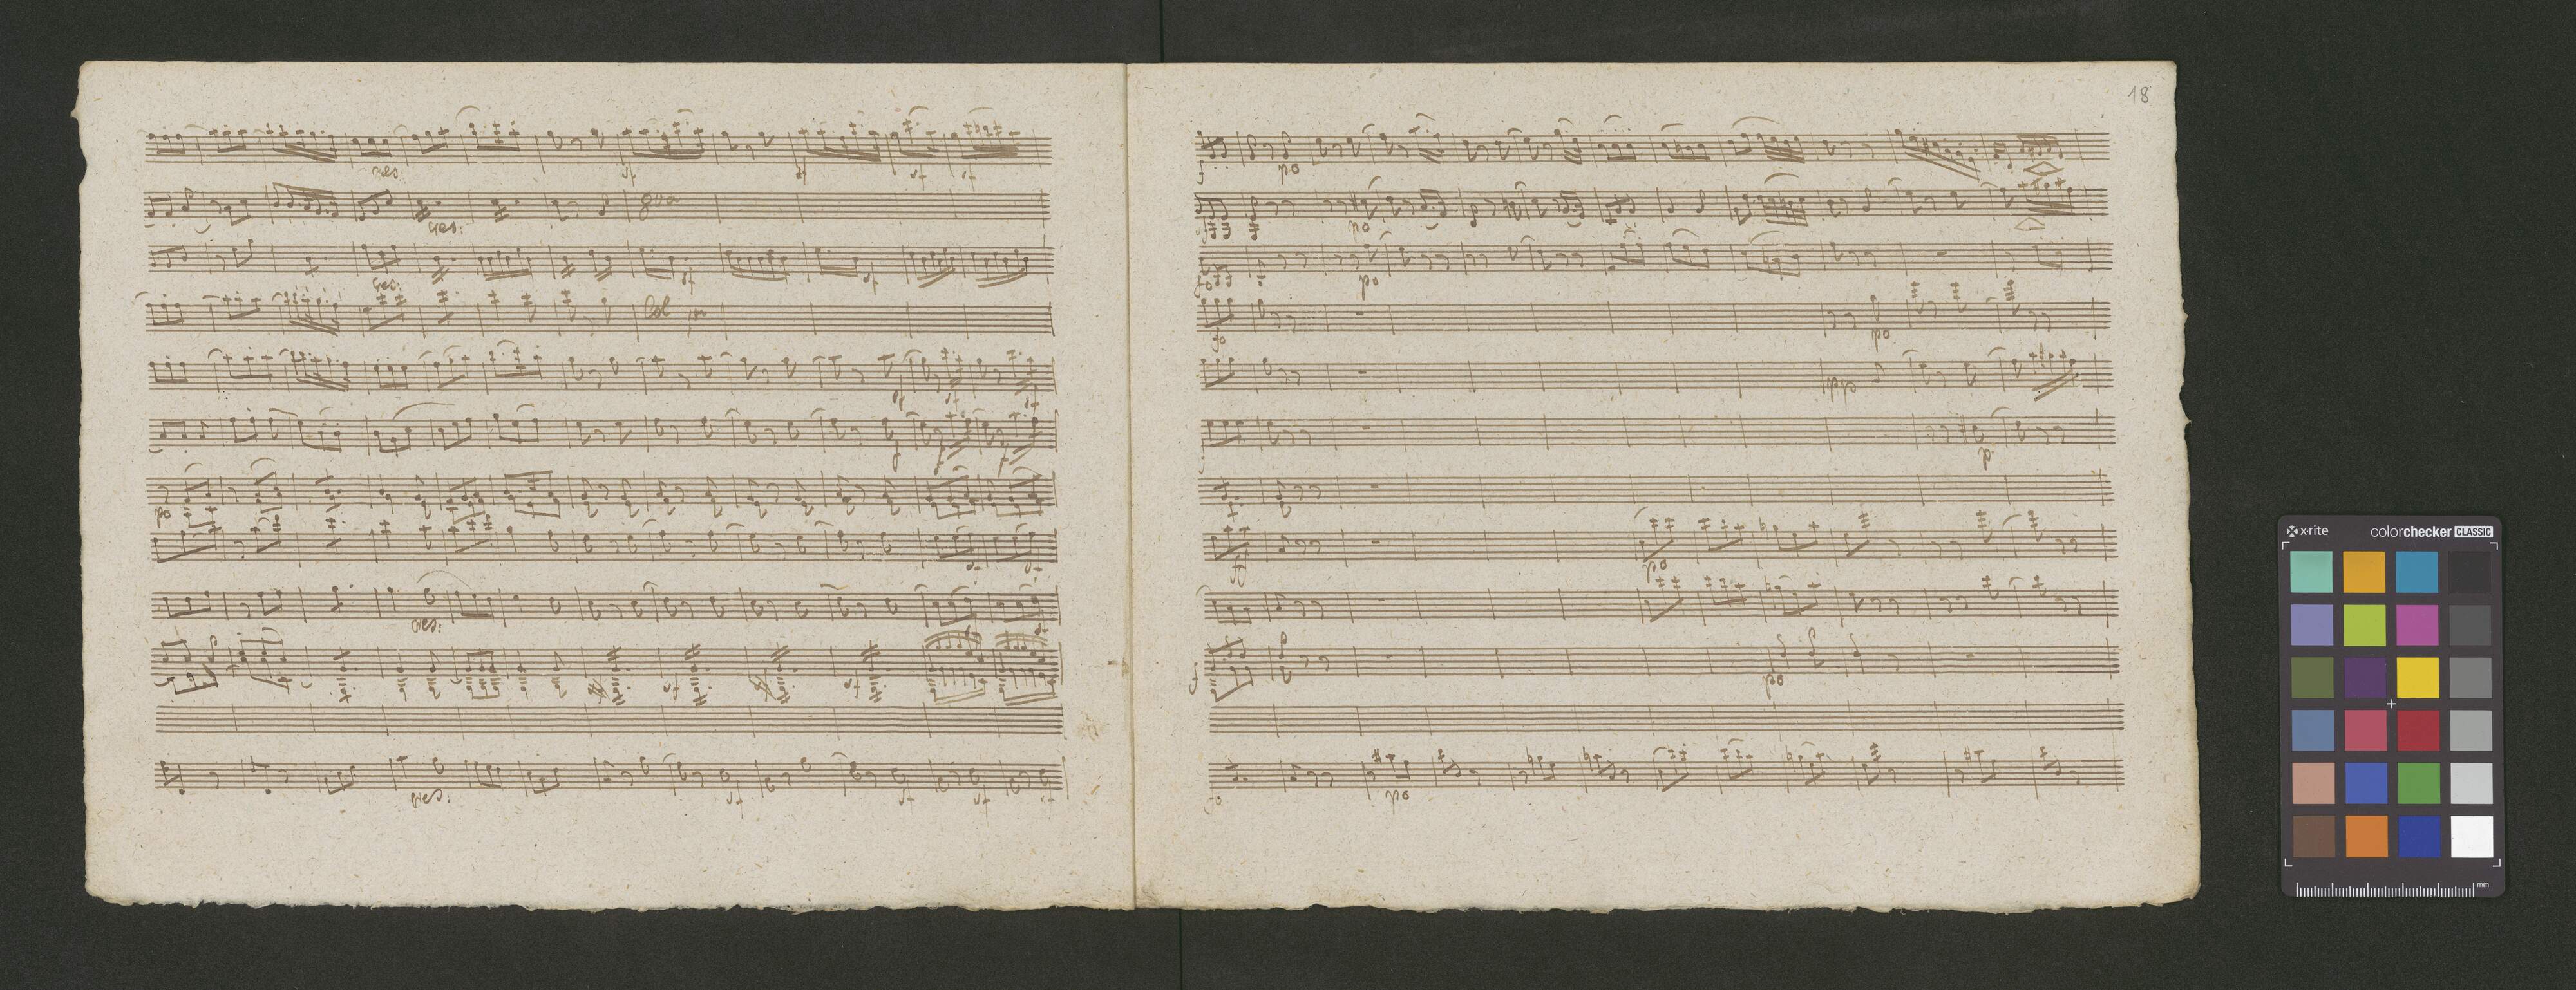 18
cres:
sf
sf
sf
sf
cres:
8va
cres:
sf
sf
Col
sf
sf
sf
f
f
f
po
sf
sf
cres:
sf
sf
sf
cres:
sf
sf
sf
sf
f
po
po
fo
po
fo
po
ppo
p
po
f
po
fo
po
x-rite
colorchecker CLASSIC
mm